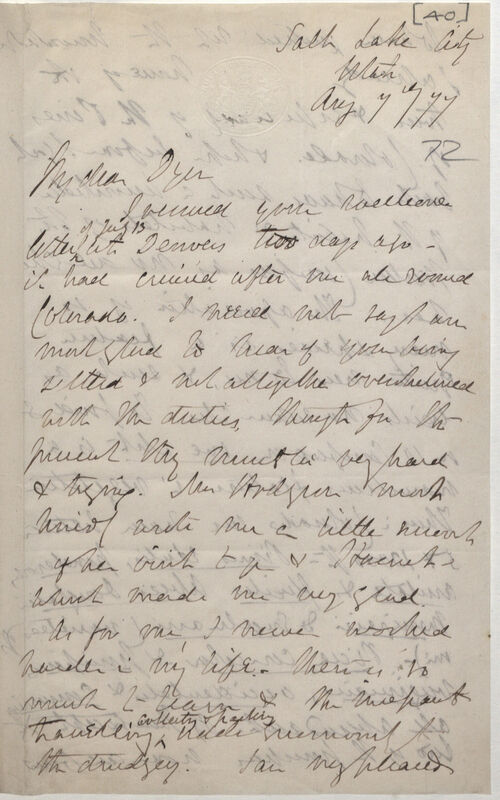 [40]
Salt Lake City
Utah
Aug 7th 77
72
My dear Dyer
I received your welcome
of July 13
letter at Denver two days ago -
it had cruised after me all round
Colorado. I need not say I am
most glad to hear of your being
settled & not altogether overwhelmed
with the duties, though for the
present they must be very hard
& trying. Mrs Hodgson most
kindly wrote me a little
of her visit to you & Harriet
which made me very glad.
As for me I never worked
harder in my life. - there is so
much to learn & the incessant
collecting & packing
travelling
the drudgery. I am very pleased